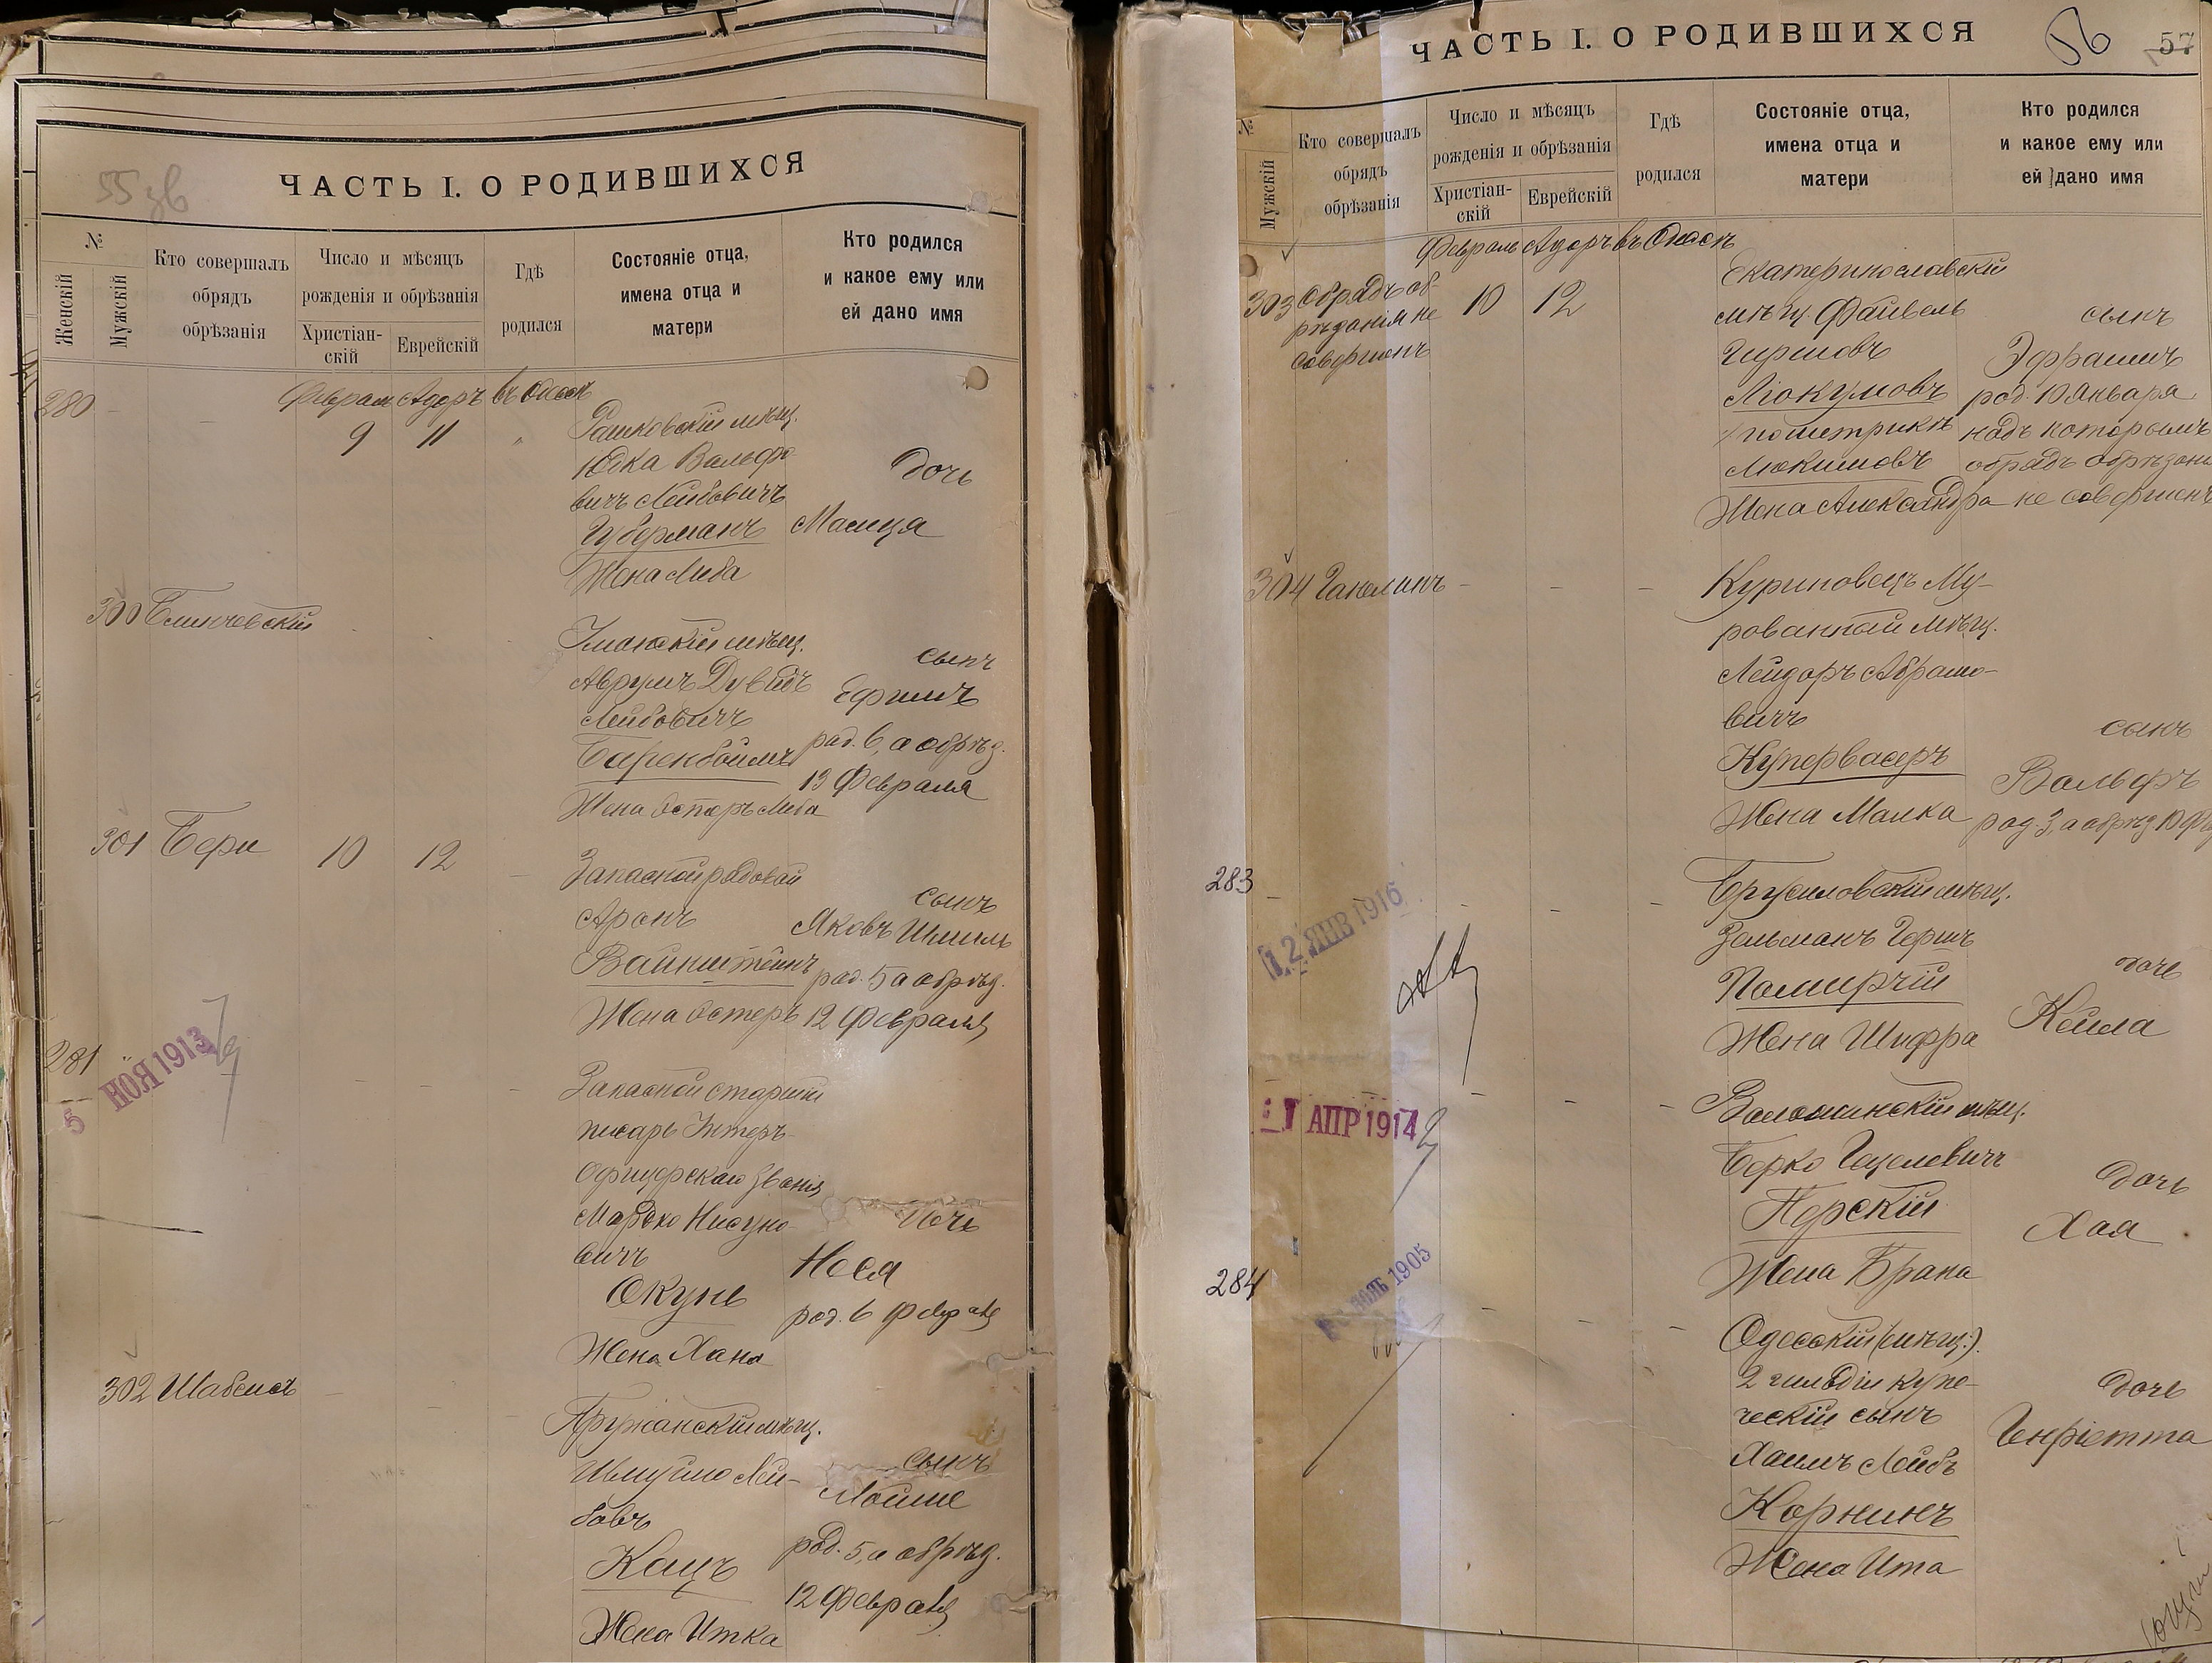 55 зв
ЧАСТЬ I. О РОДИВШИХСЯ
№
Женскій
Мужскій
Кто совершалъ обрядъ обрѣзанія
Число и мѣсяцъ рожденія и обрѣзанія
Христіанскій
Еврейскій
Гдѣ родился
Состояніе отца, имена отца и матери
Кто родился и какое ему или ей дано имя
280
Февраль Адоръ въ Одессѣ
9 11
Рашковскій мѣщ.
Юдка Вольфо
вичъ Лейбовичъ
Губерманъ
Жена Либа
дочь
Маися
300
Уманскій мѣщ.
Аврумъ Дувидъ
Лейбовичъ
Баренбоймъ
Жена Эстеръ Либа
сынъ
Ефимъ
род. 6, а обрѣз.
13 Февраля
301 Бери 10 12
Запасной рядовой
Аронъ
Вайнштейнъ
Жена Эстеръ
сынъ
Яковъ Шмиль
род. 5 а обрѣз.
12 Февраля
281
5 НОЯ 1913
Запасной старшій
писарь Унтеръ-
офицерскаго званія
Мордко Нисуно-
вичъ
Окунь
Жена Хана
дочь
Нося
род. 6 февраля
302
Пружанскій мѣщ.
Шмуйло Лей-
бовъ
Кацъ
Жена Итка
сынъ
Мойше
род. 5, а обрѣз.
12 Февраля
ЧАСТЬ I. О РОДИВШИХСЯ
56
57
№
Мужскій
Кто совершалъ обрядъ обрѣзанія
Число и мѣсяцъ рожденія и обрѣзанія
Христіанскій
Еврейскій
Гдѣ родился
Состояніе отца, имена отца и матери
Кто родился и какое ему или ей дано имя
Февраль Адоръ въ Одессѣ
303 Обрядъ об-
рѣзанія не
совершенъ
10 12
Екатеринославскій
мѣщ. Файвель
Гиршовъ
Люкумовъ
по метрикѣ
Люкимовъ
Жена Александра
сынъ
Эфраимъ
род. 10 Января
надъ которымъ
обрядъ обрѣзанія
не совершенъ
304
Куриловецъ Му-
рованной мѣщ.
Лейзоръ Абрамо-
вичъ
Купервасеръ
Жена Малка
сынъ
Вольфъ
род. 3, а обрѣз 10
283
12 ЯНВ 1916
Брусиловскій мѣщ.
Зельманъ Гершъ
Помирчій
Жена Шифра
дочь
Кейла
АПР 1914
Воложинскій мѣщ.
Берко Гецелевичъ
Перскій
Жена Брана
дочь
Хая
284
1905
Одесскій (мѣщ:).
2 гильдіи купе-
ческій сынъ
Хаимъ Лейбъ
Корнинъ
Жена Ита
дочь
Генріетта